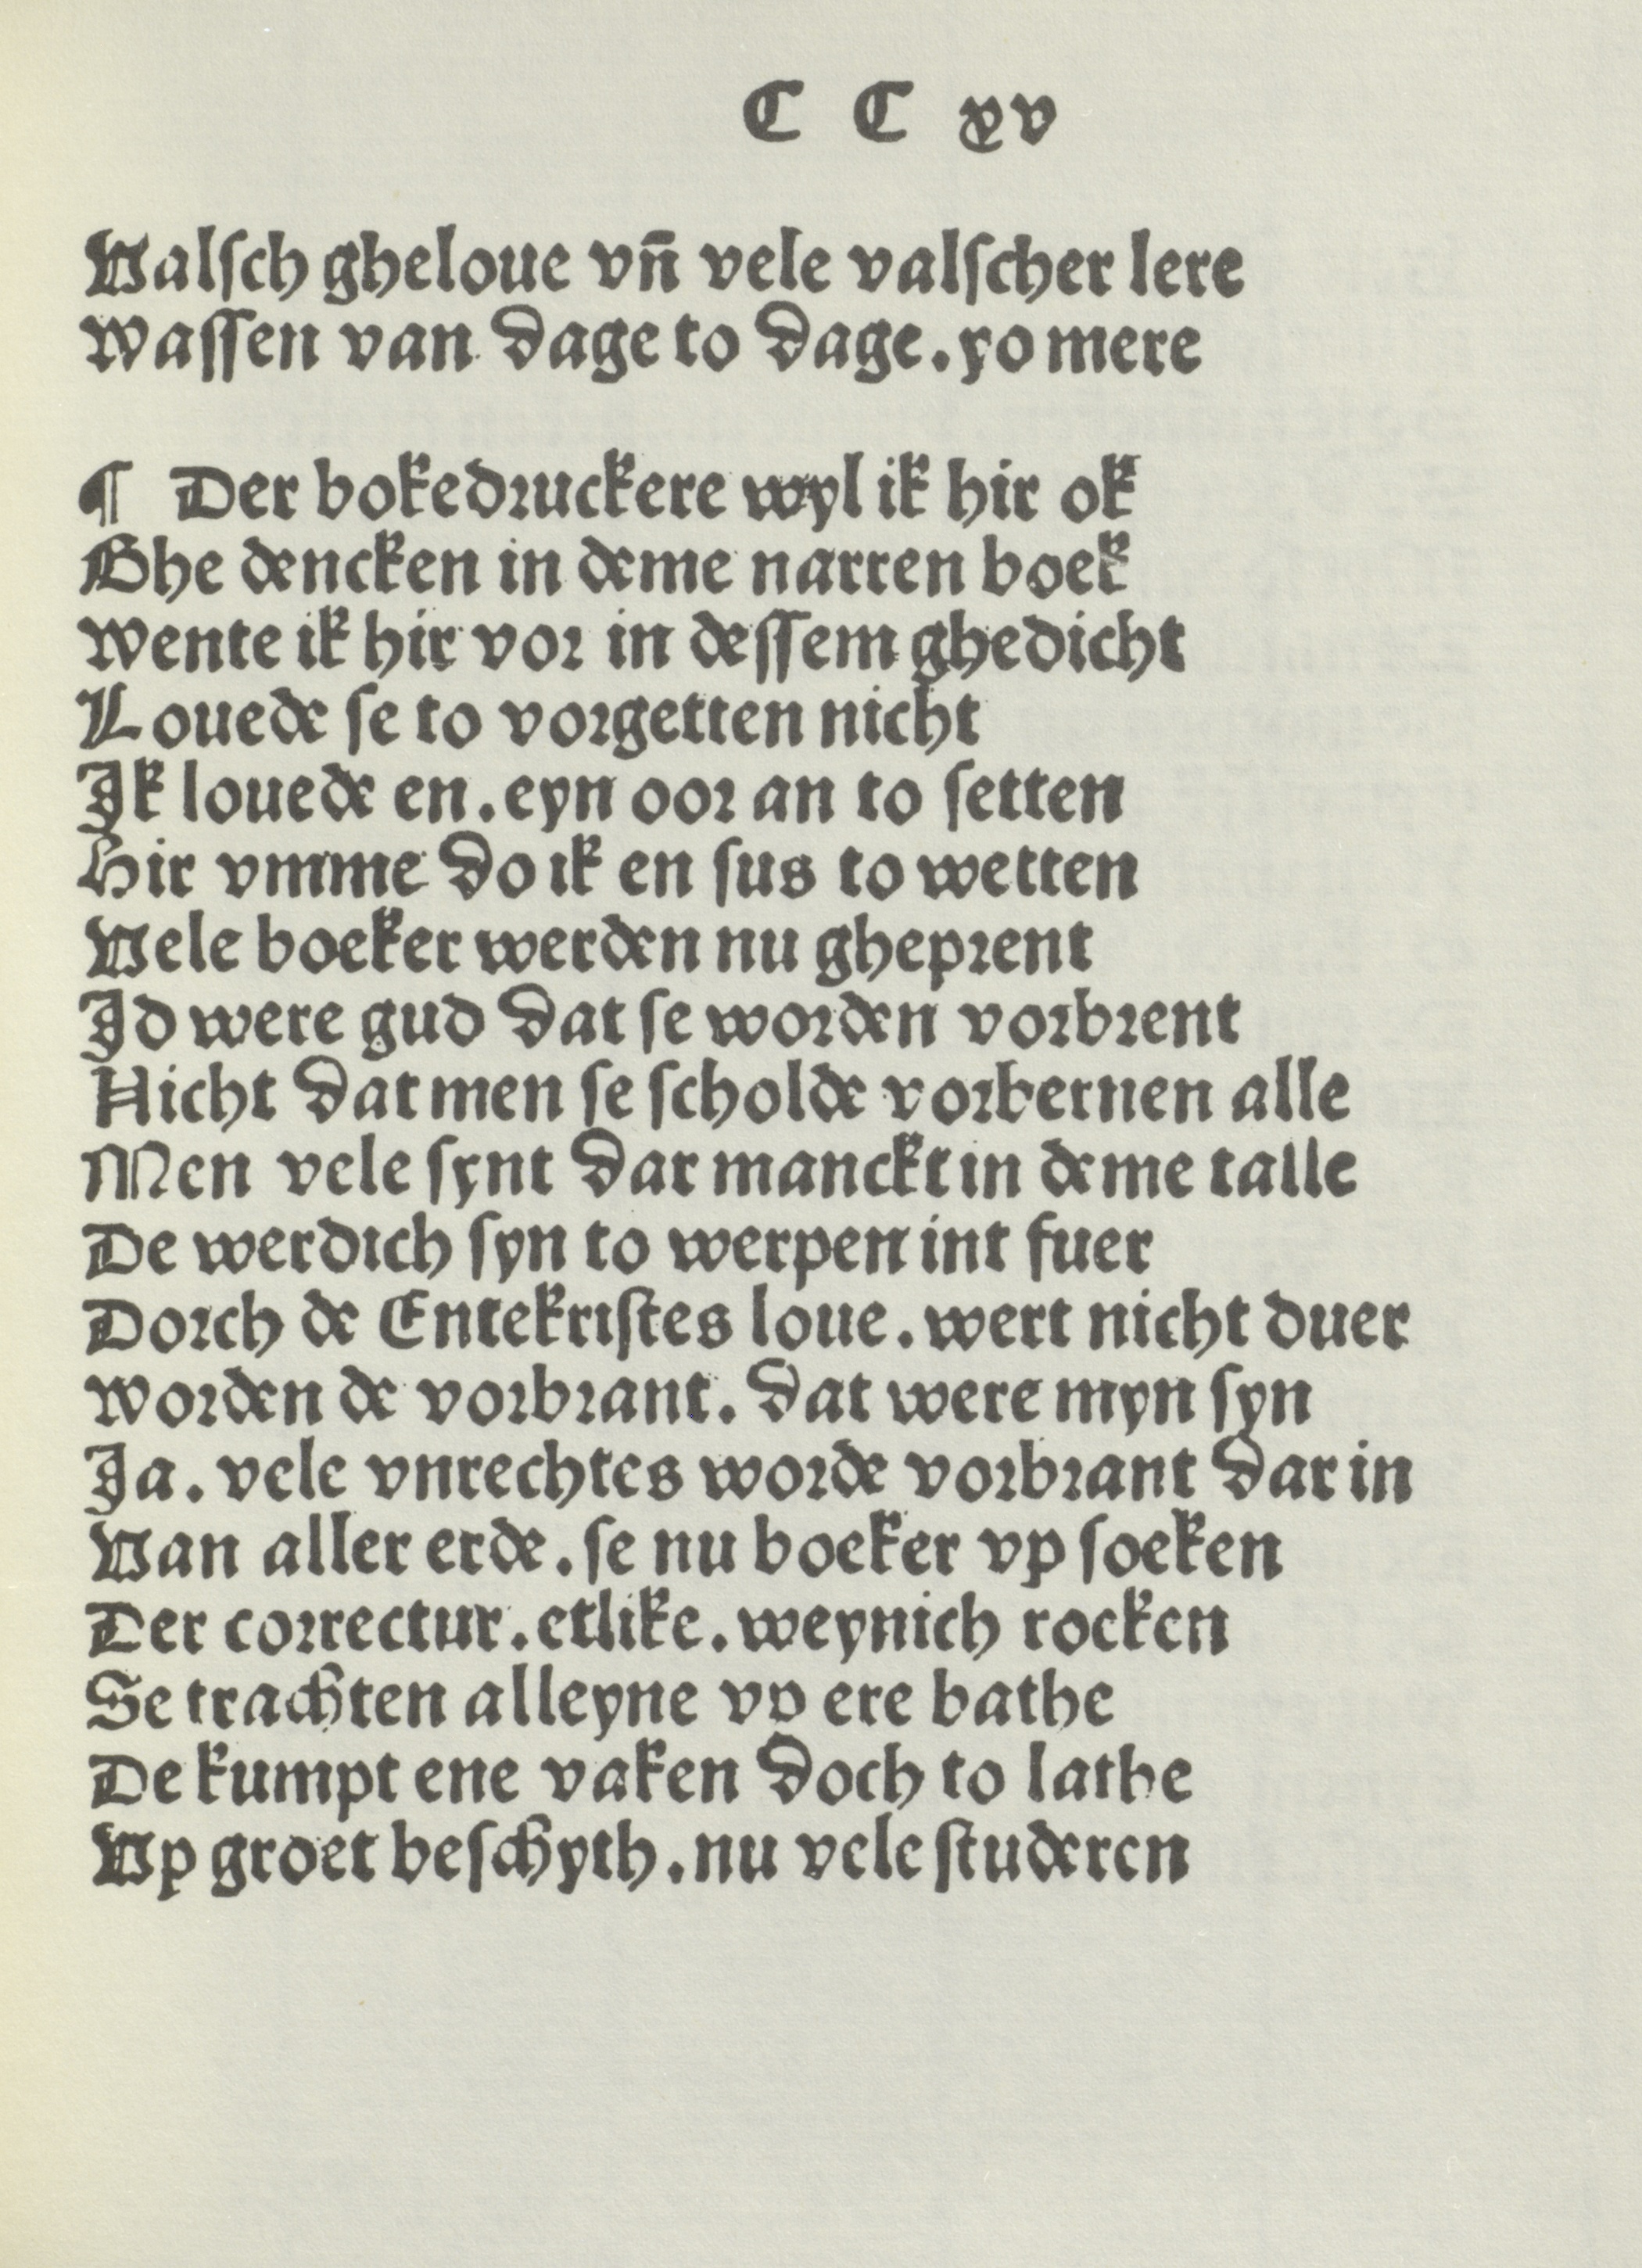 C C xv
Valſch gheloue vn̄ vele valſcher lere
Waſſen van dage to dage. yo mere
¶ Der bokedruckere wyl ik hir ok
Ghe dencken in deme narren boek
Wente ik hir vor in deſſem ghedicht
Louede ſe to vorgetten nicht
Ik louede en. eyn oor an to ſetten
Hir vmme do ik en ſus to wetten
Vele boeker werden nu gheprent
Id were gud dat ſe worden vorbrent
Nicht dat men ſe ſcholde vorbernen alle
Men vele ſynt dar manckt in deme talle
De werdich ſyn to werpen int fuer
Dorch de Entekriſtes loue. wert nicht duer
Worden de vorbrant. dat were myn ſyn
Ja. vele vnrechtes worde vorbrant dar in
Van aller erde. ſe nu boeker vp ſoeken
Der correctur. etlike. weynich rocken
Se trachten alleyne vp ere bathe
De kumpt ene vaken doch to lathe
Vp groet beſchyth. nu vele ſtuderen